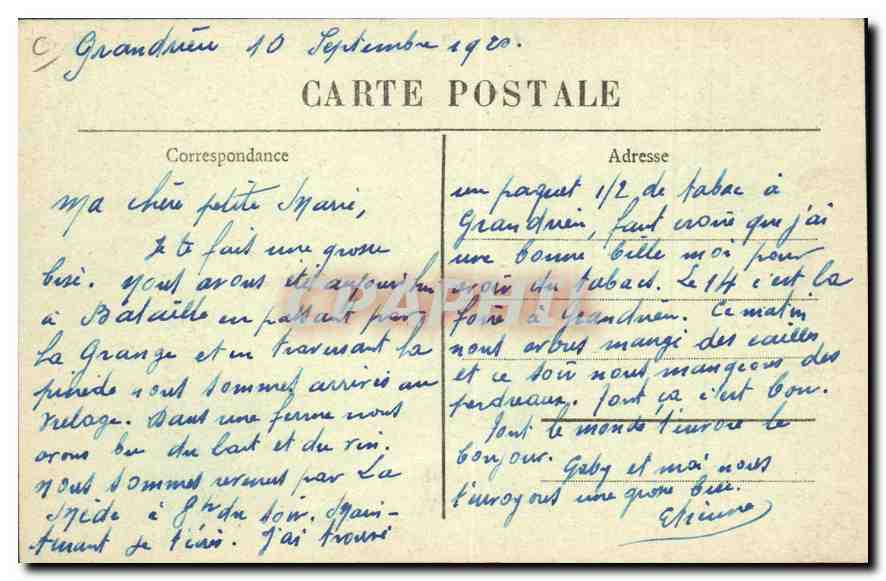 Grandrieu 10 Septembre 1920.
CARTE POSTALE
Correspondance
Ma chère petite Marie,
Je te fait une grosse
bise. Nous avons été aujourd'hui
à Bataille en passant par
La Grange et en traversant la
pinède nous sommes arrivés au
Village. Dans une ferme nous
avons bu du lait et du vin.
Nous sommes revenus par La
à 8h du soir. Main-
tenant je t'écris. J'ai trouvé
Adresse
un paquet 1/2 de tabac à
Grandrieu, faut croire que j'ai
une bonne bille moi pour
avoir du tabacs. Le 14 c'est la
foire à Grandrieu. Ce matin
nous avons mangé des cailles
et ce soir nous mangeons des
perdreaux. Tout ça c'est bon.
Tout le monde t'envoie le
bonjour. Gaby et moi nous
t'envoyons une grosse bise.
Etienne
CPAPHIL